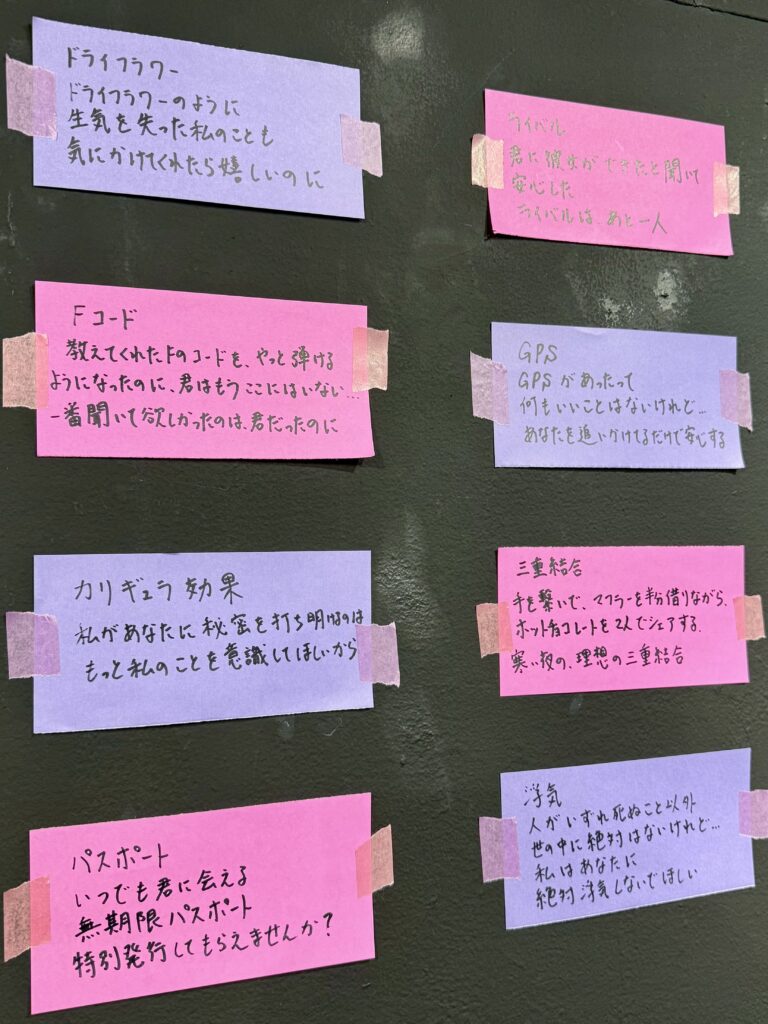 ドライフラワー
ドライフラワーのように
生気を失った私のことも
気にかけてくれたら嬉しいのに
Fコード
教えてくれたFのコードを、やっと弾ける
ようになったのに、君はもうここにはいない…
一番聞いて欲しかったのは、君だったのに
カリギュラ効果
私があなたに秘密を打ち明けるのは
もっと私のことを意識してほしいから
パスポート
いつでも君に会える
無期限パスポート
特別発行してもらえませんか?
ライバル
君に彼女ができたと聞いて
安心した
ライバルは、あと一人
GPS
GPSがあったって
何もいいことはないけれど…
あなたを追いかけてるだけで安心する
三重結合
手を繋いで、マフラーを半分借りながら、
ホットチョコレートを2人でシェアする。
寒い夜の、理想の三重結合
浮気
人がいずれ死ぬこと以外
世の中に絶対はないけれど…
私はあなたに
絶対浮気しないでほしい